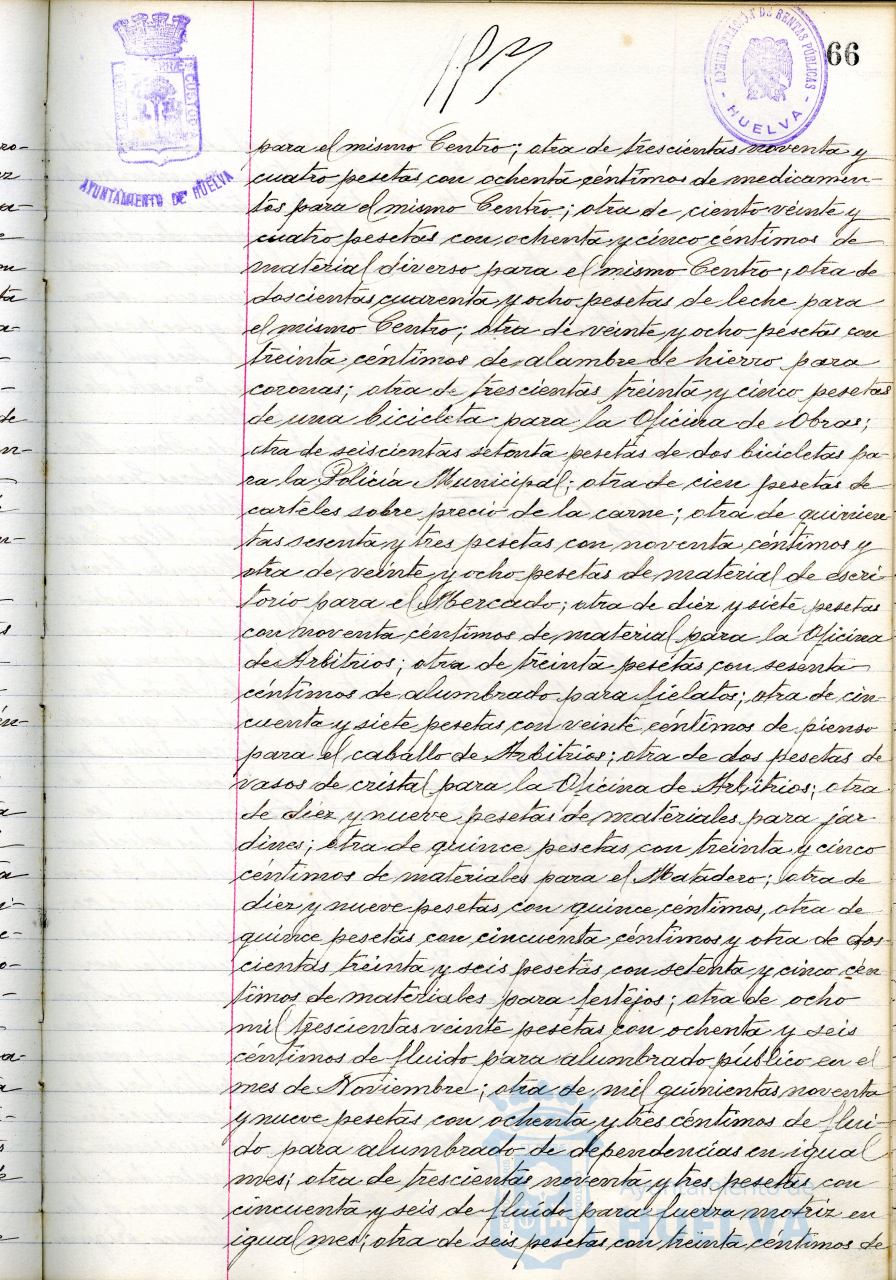 66
ADMINISTRACIÓN DE RENTAS PÚBLICAS
- HUELVA -
AYUNTAMIENTO DE HUELVA
para el mismo Centro; otra de trescientas noventa y
cuatro pesetas con ochenta céntimos de medicamen-
tos para el mismo Centro; otra de ciento veinte y
cuatro pesetas con ochenta y cinco céntimos de
material diverso para el mismo Centro; otra de
doscientas cuarenta y ocho pesetas de leche para
el mismo Centro; otra de veinte y ocho pesetas con
treinta céntimos de alambre de hierro para
coronas; otra de trescientas treinta y cinco pesetas
de una bicicleta para la Oficina de Obras;
otra de seiscientas setenta pesetas de dos bicicletas pa-
ra la Policía Municipal; otra de cien pesetas de
carteles sobre precio de la carne; otra de quinien-
tas sesenta y tres pesetas con noventa céntimos y
otra de veinte y ocho pesetas de material de escri-
torio para el Mercado; otra de diez y siete pesetas
con noventa céntimos de material para la Oficina
de Arbitrios; otra de treinta pesetas con sesenta
céntimos de alumbrado para fielatos; otra de cin-
cuenta y siete pesetas con veinte céntimos de pienso
para el caballo de Arbitrios; otra de dos pesetas de
vasos de cristal para la Oficina de Arbitrios; otra
de diez y nueve pesetas de materiales para jar-
dines; otra de quince pesetas con treinta y cinco
céntimos de materiales para el Matadero; otra de
diez y nueve pesetas con quince céntimos, otra de
quince pesetas con cincuenta céntimos y otra de dos-
cientas treinta y seis pesetas con setenta y cinco cén
timos de materiales para festejos; otra de ocho
mil trescientas veinte pesetas con ochenta y seis
céntimos de fluido para alumbrado público en el
mes de Noviembre; otra de mil quinientas noventa
y nueve pesetas con ochenta y tres céntimos de flui-
do para alumbrado de dependencias en igual
mes; otra de trescientas noventa y tres pesetas con
cincuenta y seis de fluido para fuerza motriz en
igual mes; otra de seis pesetas con treinta céntimos de
Ayuntamiento de
HUELVA